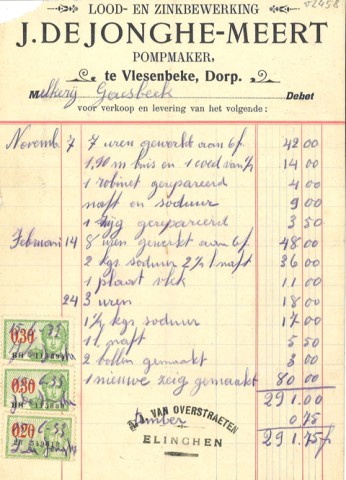 52458
LOOD- EN ZINKBEWERKING
J. DE JONGHE-MEERT
POMPMAKER,
te Vlesenbeke, Dorp.
Melkerij Gaesbeek Debet
voor verkoop en levering van het volgende:
Novemb 7 7 uren gewerkt aan 6 f. 42 00
1,90 m buis en 1 coed van 14 00
1 robinet gerepareerd 4 00
naft en soduur 9 00
1 gerepareerd 3 50
Februari 14 8 uren gewerkt aren 6 f. 48 00
2 kgs soduur 2 naft 36 00
1 plaat vlek 11 00
24 3 uren 18 00
1 1/2 kgs soduur 17 00
naft 5 50
2 bollen gemaakt 3 00
1 nieuwe zeig gemaakt 80 00
291.00
Timber 0 75
291.75 f
VAN OVERSTRAETEN
ELINGHEN
0.30
0.30
0.20